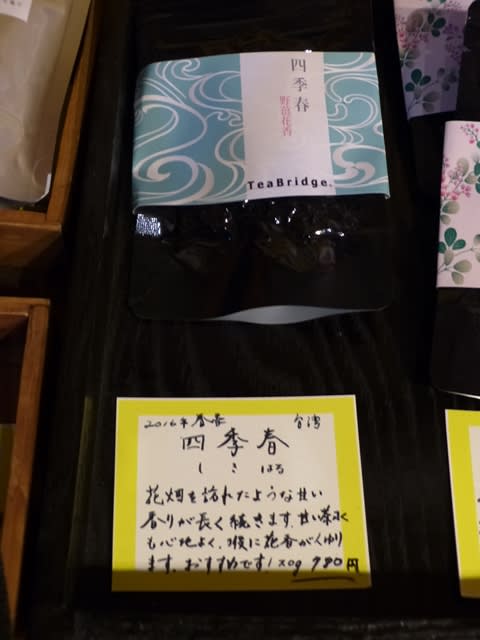 四季春
野萱花香
TeaBridge.
2016年春茶 台湾
四季春
しきはる
花畑を訪れたような甘い
香りが長く続きます。甘い茶水
も心地よく、喉に花香がくゆり
ます。おすすめです! 20g 980円